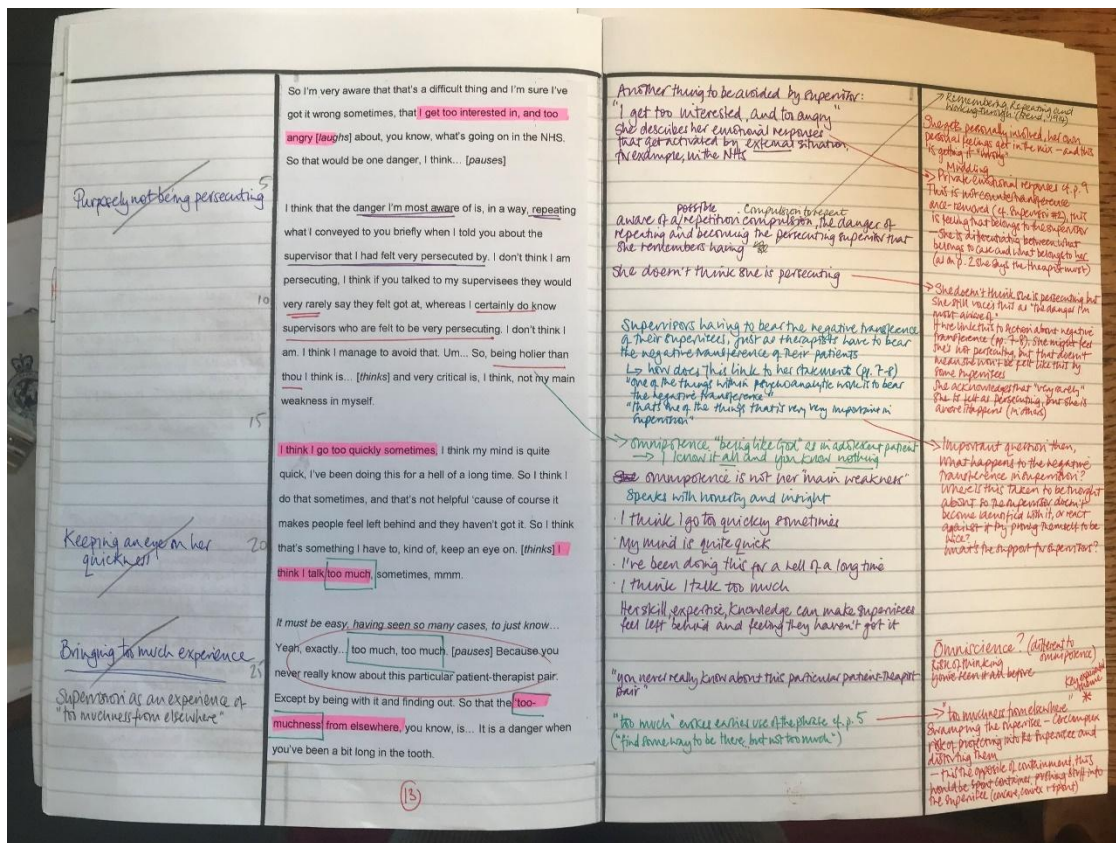 Purposely not being persecuting
Keeping an eye on her
quickness
Bringing too much experience
Supervision as an experience of
"too muchness from elsewhere"
5
10
15
20
25
So I'm very aware that that's a difficult thing and I'm sure I've
got it wrong sometimes, that I get too interested in, and too
angry [laughs] about, you know, what's going on in the NHS.
So that would be one danger, I think... [pauses]
I think that the danger I'm most aware of is, in a way, repeating
what I conveyed to you briefly when I told you about the
supervisor that I had felt very persecuted by. I don't think I am
persecuting, I think if you talked to my supervisees they would
very rarely say they felt got at, whereas I certainly do know
supervisors who are felt to be very persecuting. I don't think I
am. I think I manage to avoid that. Um... So, being holier than
thou I think is... [thinks] and very critical is, I think, not my main
weakness in myself.
I think I go too quickly sometimes, I think my mind is quite
quick, I've been doing this for a hell of a long time. So I think I
do that sometimes, and that's not helpful 'cause of course it
makes people feel left behind and they haven't got it. So I think
that's something I have to, kind of, keep an eye on. [thinks] I
think I talk too much, sometimes, mmm.
It must be easy, having seen so many cases, to just know...
Yeah, exactly... too much, too much. [pauses] Because you
never really know about this particular patient-therapist pair.
Except by being with it and finding out. So that the 'too-
muchness' from elsewhere, you know, is... It is a danger when
you've been a bit long in the tooth.
13
Another thing to be avoided by supervisor:
"I get too interested, and too angry"
She describes her emotional responses
that get activated by external situation,
for example, in the NHS
possible Compulsion to repeat
aware of a repetition compulsion, the danger of
repeating and becoming the persecuting supervisor that
she remembers having
She doesn't think she is persecuting
Supervisors having to bear the negative transference
of their supervisees, just as therapists have to bear
the negative transference of their patients
↳ how does this link to her statement (pg. 7-8)
"one of the things within psychoanalytic work is to bear
the negative transference"
"that's one of the things that is very very important in
supervision"
omnipotence, "being like God" as in adolescent patient
→ I know it all and you know nothing
omnipotence is not her "main weakness"
Speaks with honesty and insight
· I think I go too quickly sometimes
· My mind is quite quick
· I've been doing this for a hell of a long time
· I think I talk too much
Her skill, expertise, knowledge can make supervisees
feel left behind and feeling they haven't got it
"you never really know about this particular patient-therapist
pair"
"too much" evokes earlier use of the phrase cf. p. 5
("find some way to be there, but not too much")
Remembering, Repeating and
Working through (Freud, 1914)
She gets personally involved, her own
personal feelings get in the mix – and this
is getting it "wrong"
Private emotional responses cf. p. 9
This is not countertransference
once-removed (cf. Supervisor #2), this
is feeling that belongs to the supervisor
– She is differentiating between what
belongs to case and what belongs to her
(as on p. 2 she says the therapist must)
She doesn't think she is persecuting but
she still voices this as "the danger I'm
most aware of"
If we link this to section about negative
transference (pp. 7-8), she might feel
she's not persecuting, but that doesn't
mean she won't be felt like this by
some supervisees
She acknowledges that "very rarely"
she is felt as persecuting, but she is
aware it happens (in others)
Important question then,
What happens to the negative
transference in supervision?
Where is this taken to be thought
about so the supervisor doesn't
become identified with it, or react
against it by proving themself to be
nice?
What's the support for supervisors?
Omniscience? (different to
omnipotence)
Risk of thinking
you've seen it all before
Key
"too muchness from elsewhere"
Swamping the supervisee –
risk of projecting into the supervisee and
distorting them
– this the opposite of containment, this
would be container, pushing stuff into
the supervisee (concave, convex + )